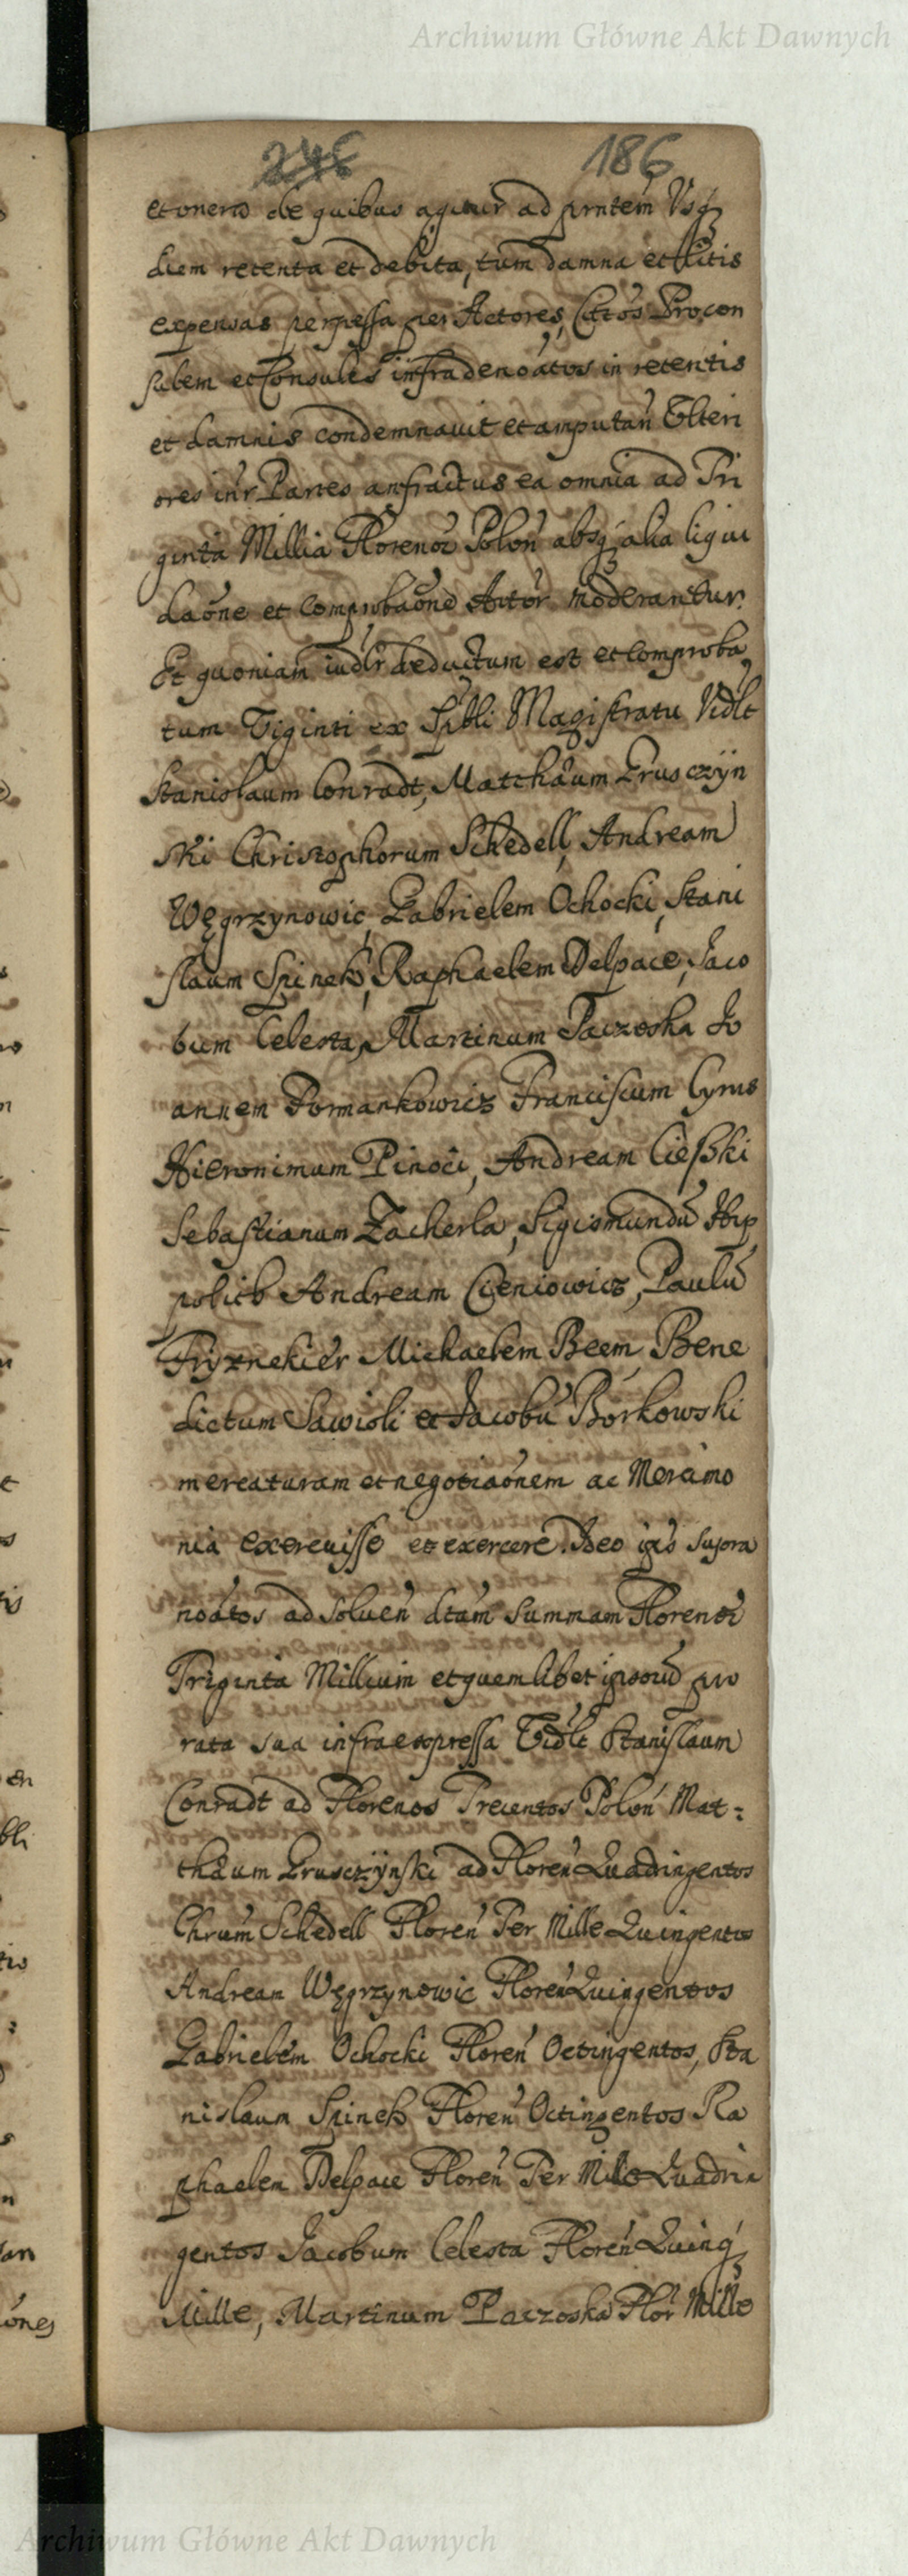 Archiwum Główne Akt Dawnych
246 186
et onera de quibus agitur ad prntem Usq
diem retenta et debita, tum damna et litis
expensas perpessa per Actores, Citos Procon
sulem et Consules infradenoatos in retentis
et damnis condemnavit et amputan Ulteri
ores inr Partes anfractus ea omnia ad Tri
ginta Millia Florenor Polon absq alia liqui
daone et comprobaone Actor moderantur.
Et quoniam iudlr deductum est et comproba
tum Viginti ex Spbli Magistratu Vidlt
Stanislaum Conradt, Matthæum Gruscziÿn
ski Christophorum Schedell, Andream
Węgrzynowic, Gabrielem Ochocki, Stani
slaum Szinek, Raphaelem Delpace, Jaco
bum Celesta, Martinum Paczoska Jo
annem Pormankowicz Franciscum Cyrus
Hieronimum Pinoci, Andream Cieszki
Sebastianum Zacherla, Sigismundu Hip
polith Andream Cieniowicz, Paulu
Fryznekier Michaelem Beem, Bene
dictum Sawioli et Jacobu Borkowski
mercaturam et negotiaonem ac Mercimo
nia exercuisse et exercere. Ideo ipos supra
noatos ad solven dtam summam Florenor
Triginta Millium et quemlibet ipsoru pro
rata sua infraexpressa Vidlt Stanislaum
Conradt ad Florenos Trecentos Polon Mat:
thæum Gruscziÿnski ad Floren Quadringentos
Chrum Schedell Floren Ter Mille Quingentos
Andream Węgrzynowic Floren Quingentos
Gabrielem Ochocki Floren Octingentos, Sta
nislaum Szinek Floren Octingentos Ra
phaelem Delpace Floren Ter Mille Quadrin
gentos Jacobum Celesta Floren Quinq
Mille, Martinum Paczoska Flor Mille
Archiwum Główne Akt Dawnych